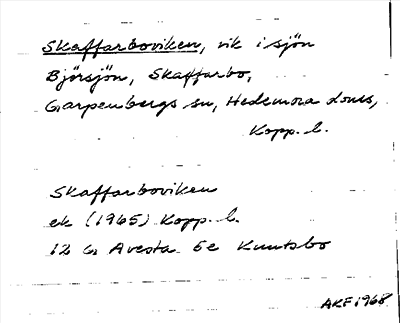 Skaffarboviken, vik i sjön
Björsjön, Skaffarbo,
Garpenbergs sn, Hedemora doms,
Kopp. l.
Skaffarboviken
ek (1965) Kopp. l.
12 G Avesta 5e Knutsbo
AKF 1968